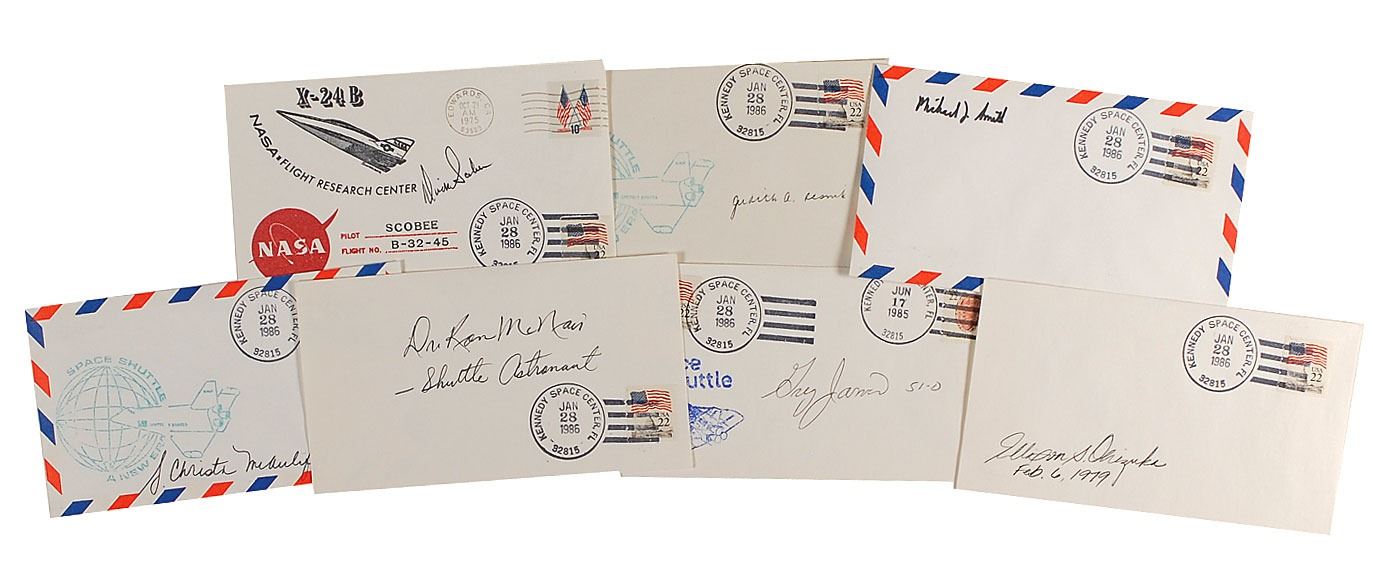 X-24B
NASA★FLIGHT RESEARCH CENTER
EDWARDS, CA
OCT 21
AM
1975
93523
10c
NASA
PILOT SCOBEE
FLIGHT NO. B-32-45
KENNEDY SPACE CENTER, FL
JAN
28
1986
USA
22
KENNEDY SPACE CENTER, FL
JAN
28
1986
32815
USA
22
Judith A. Resnik
Michael J. Smith
KENNEDY SPACE CENTER, FL
JAN
28
1986
32815
USA
22
KENNEDY SPACE CENTER, FL
JAN
28
1986
32815
SPACE SHUTTLE
A NEW ERA
S. Christa McAulif
Dr. Ron McNair
– Shuttle Astronaut
KENNEDY SPACE CENTER, FL
JAN
28
1986
32815
USA
22
22
KENNEDY SPACE CENTER, FL
JAN
28
1986
32815
KENNEDY
TER, FL
JUN
17
1985
32815
22
ce
uttle
Greg Jarvis 51-D
KENNEDY SPACE CENTER, FL
JAN
28
1986
32815
USA
22
Ellison S. Onizuka
Feb. 6, 1979